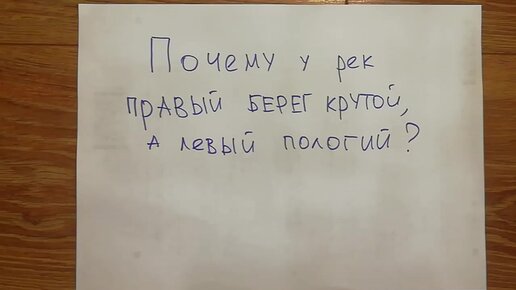 Почему у рек
правый берег крутой,
а левый пологий?